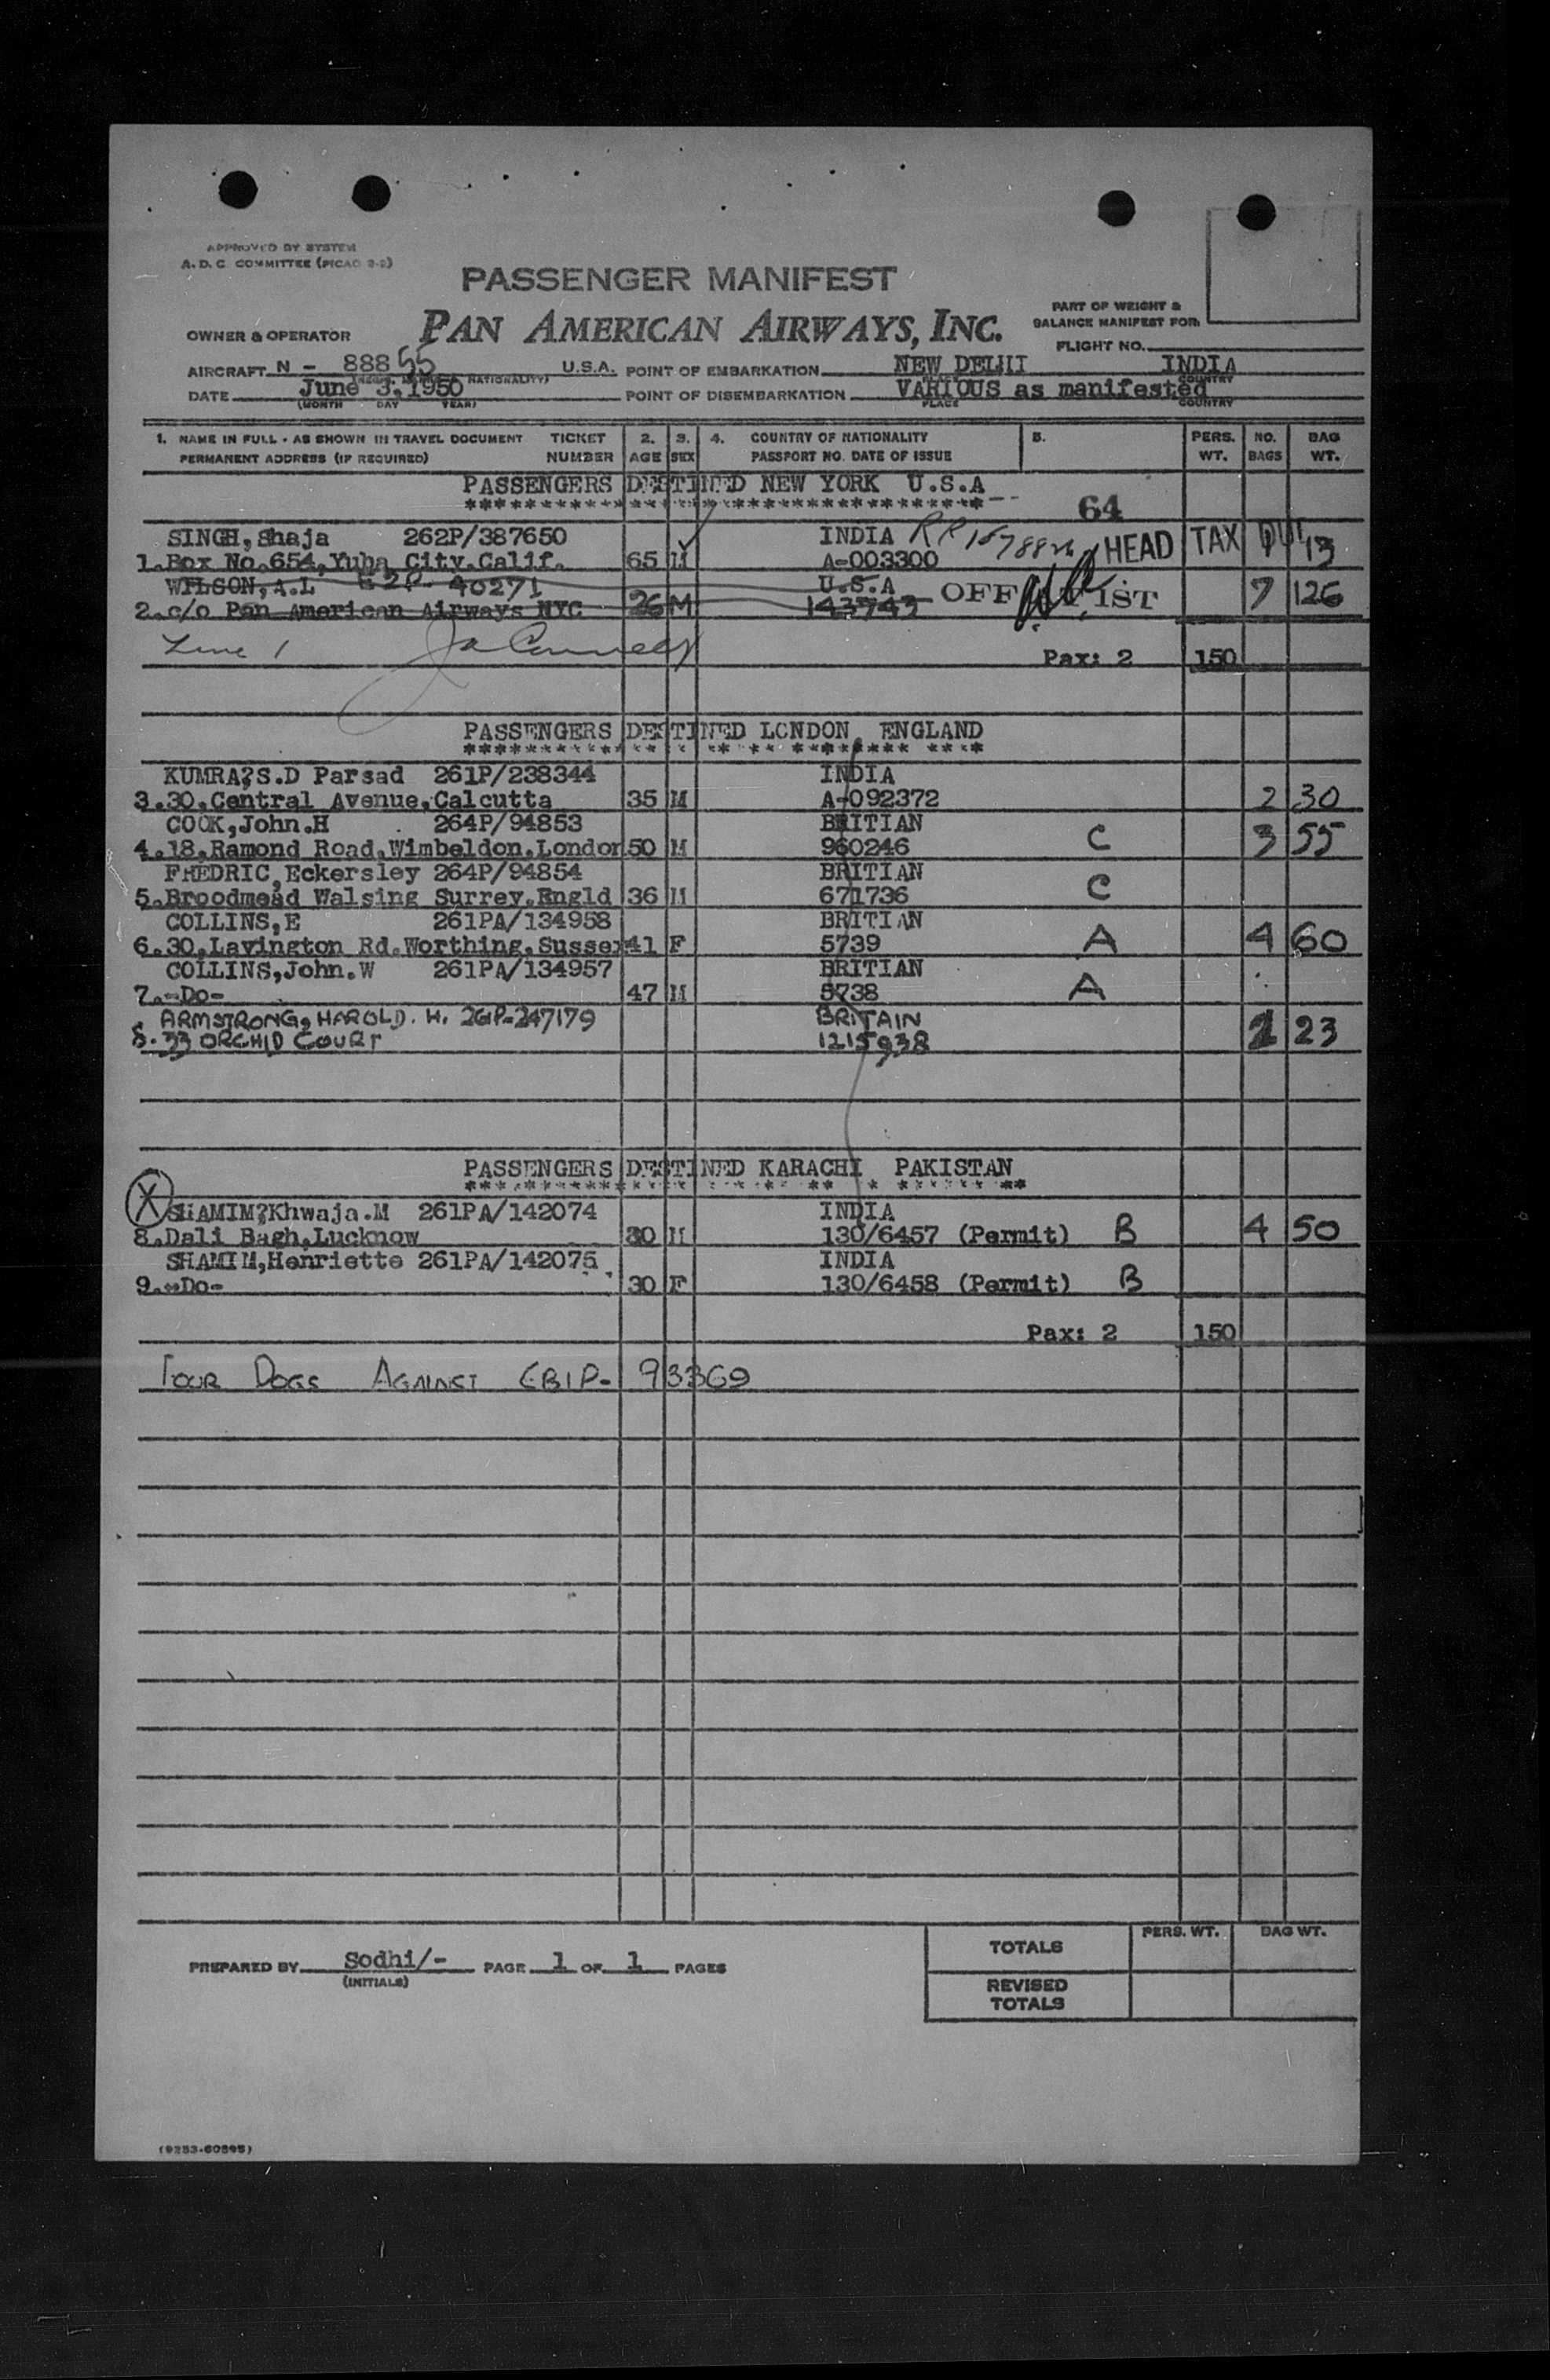 APPROVED BY SYSTEM
A. D. C. COMMITTEE (PICAO 2-2)
PASSENGER MANIFEST
PART OF WEIGHT &
BALANCE MANIFEST FOR:
OWNER & OPERATOR PAN AMERICAN AIRWAYS, INC.
FLIGHT NO.
AIRCRAFT N - 88855 U.S.A. POINT OF EMBARKATION NEW DELHI INDIA
NATIONALITY) COUNTRY
DATE June 3, 1950 POINT OF DISEMBARKATION VARIOUS as manifested
(MONTH DAY YEAR) PLACE COUNTRY
1. NAME IN FULL - AS SHOWN IN TRAVEL DOCUMENT TICKET 2. 3. 4. COUNTRY OF NATIONALITY 5. PERS. NO. BAG
PERMANENT ADDRESS (IF REQUIRED) NUMBER AGE SEX PASSPORT NO. DATE OF ISSUE WT. BAGS WT.
PASSENGERS DESTINED NEW YORK U.S.A
********************************
64
SINGH, Shaja 262P/387650 INDIA HEAD TAX
1.Box No.654,Yuba City.Calif. 65 M A-003300 13
WILSON, A.L 40271 U.S.A OFF LIST 7 126
2.c/o Pan American Airways NYC 26 M 143743
Line 1
Pax: 2 150
PASSENGERS DESTINED LONDON, ENGLAND
KUMRA?S.D Parsad 261P/238344 INDIA
3.30,Central Avenue,Calcutta 35 M A-092372 2 30
COOK,John.H 264P/94853 BRITIAN
4.18,Ramond Road,Wimbeldon.London 50 M 960246 C 3 55
FREDRIC,Eckersley 264P/94854 BRITIAN
5.Broodmead Walsing Surrey.Engld 36 M 671736 C
COLLINS,E 261PA/134958 BRITIAN
6.30,Lavington Rd.Worthing.Sussex 41 F 5739 A 4 60
COLLINS,John.W 261PA/134957 BRITIAN
7.-Do- 47 M 5738 A
ARMSTRONG, HAROLD. H. 261P-247179 BRITAIN
8. 33 ORCHID COURT 1215938 23
PASSENGERS DESTINED KARACHI PAKISTAN
X SHAMIM?Khwaja.M 261PA/142074 INDIA
8.Dali Bagh,Lucknow 30 M 130/6457 (Permit) B 4 50
SHAMIM,Henriette 261PA/142075 INDIA
9.-Do- 30 F 130/6458 (Permit) B
Pax: 2 150
FOUR DOGS AGAINST EBIP- 93369
PERS. WT. BAG WT.
TOTALS
PREPARED BY Sodhi/- PAGE 1 OF 1 PAGES
(INITIALS)
REVISED
TOTALS
(9253-60595)